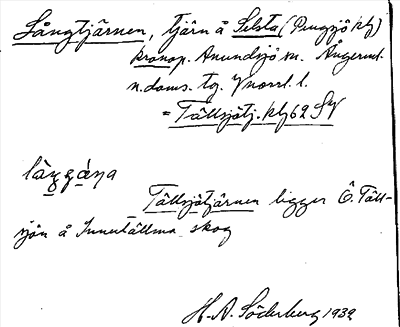 Långtjärnen, tjärn å Selsta (Pengsjö kbl)
kronop. Anundsjö sn. Ångerml.
n. doms. tg. Ynorrl. l.
= Tällsjötj. kbl 62 SV
làŋgáŋa
Tällsjötjärnen ligger Ö. Täll-
sjön å Innertällmo skog
H. A. Söderberg 1932